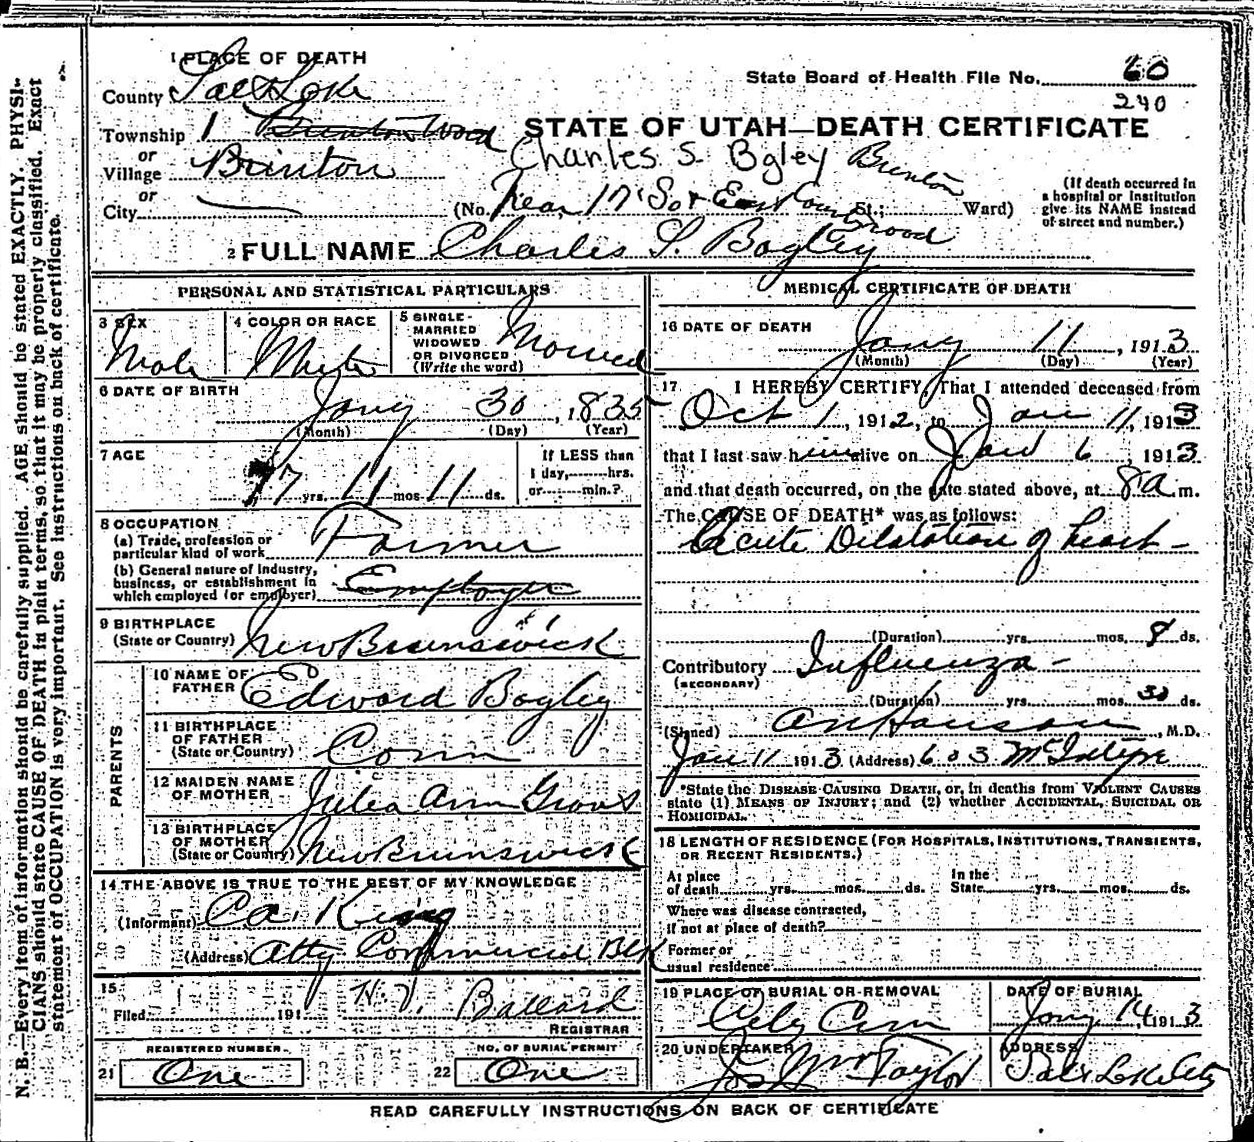 N. B.—Every item of information should be carefully supplied. AGE should be stated EXACTLY. PHYSI-
CIANS should state CAUSE OF DEATH in plain terms, so that it may be properly classified. Exact
statement of OCCUPATION is very important. See instructions on back of certificate.
1 PLACE OF DEATH
County Salt Lake
State Board of Health File No. 60
240
Township 1 Brinton Wood
STATE OF UTAH—DEATH CERTIFICATE
or
Village Brinton
Charles S. Bgley Brenton
or
City
(No. Near 17 So & East Cottonwood St.; Ward)
(If death occurred in
a hospital or institution
give its NAME instead
of street and number.)
2 FULL NAME Charles S. Bagley
PERSONAL AND STATISTICAL PARTICULARS
3 SEX Male
4 COLOR OR RACE White
5 SINGLE-
MARRIED
WIDOWED
OR DIVORCED
(Write the word)
6 DATE OF BIRTH
Jany 30, 1835
(Month) (Day) (Year)
7 AGE
77 yrs. 11 mos 11 ds.
If LESS than
1 day, hrs.
or min.?
8 OCCUPATION
(a) Trade, profession or
particular kind of work Farmer
(b) General nature of Industry,
business, or establishment in
which employed (or employer) Employer
9 BIRTHPLACE
(State or Country) New Brunswick
PARENTS
10 NAME OF
FATHER Edward Bagley
11 BIRTHPLACE
OF FATHER
(State or Country) Conn
12 MAIDEN NAME
OF MOTHER Julia Ann
13 BIRTHPLACE
OF MOTHER
(State or Country) New Brunswick
14 THE ABOVE IS TRUE TO THE BEST OF MY KNOWLEDGE
(Informant) King
(Address) Atty Commercial Blk
15
Filed 191
Ballard
REGISTRAR
REGISTERED NUMBER
21 One
NO. OF BURIAL PERMIT
22 One
MEDICAL CERTIFICATE OF DEATH
16 DATE OF DEATH
Jany 11, 1913
(Month) (Day) (Year)
17 I HEREBY CERTIFY, That I attended deceased from
Oct 1, 1912, to Jan 11, 1913
that I last saw him alive on Jan 6, 1913
and that death occurred, on the date stated above, at 8 a m.
The CAUSE OF DEATH* was as follows:
Acute Dilatation of heart -
(Duration) yrs. mos. 8 ds.
Contributory Influenza -
(SECONDARY)
(Duration) yrs. mos. 30 ds.
(Signed) A N Hanson, M.D.
Jan 11 1913 (Address) 603 McIntyre
*State the DISEASE CAUSING DEATH, or, in deaths from VIOLENT CAUSES
state (1) MEANS OF INJURY; and (2) whether ACCIDENTAL, SUICIDAL OR
HOMICIDAL.
18 LENGTH OF RESIDENCE (FOR HOSPITALS, INSTITUTIONS, TRANSIENTS,
OR RECENT RESIDENTS.)
At place
of death yrs. mos. ds.
In the
State yrs. mos. ds.
Where was disease contracted,
if not at place of death?
Former or
usual residence
19 PLACE OF BURIAL OR REMOVAL
City Cem
DATE OF BURIAL
Jany 14, 1913
20 UNDERTAKER
Jos Wm Taylor
ADDRESS
Salt Lake City
READ CAREFULLY INSTRUCTIONS ON BACK OF CERTIFICATE